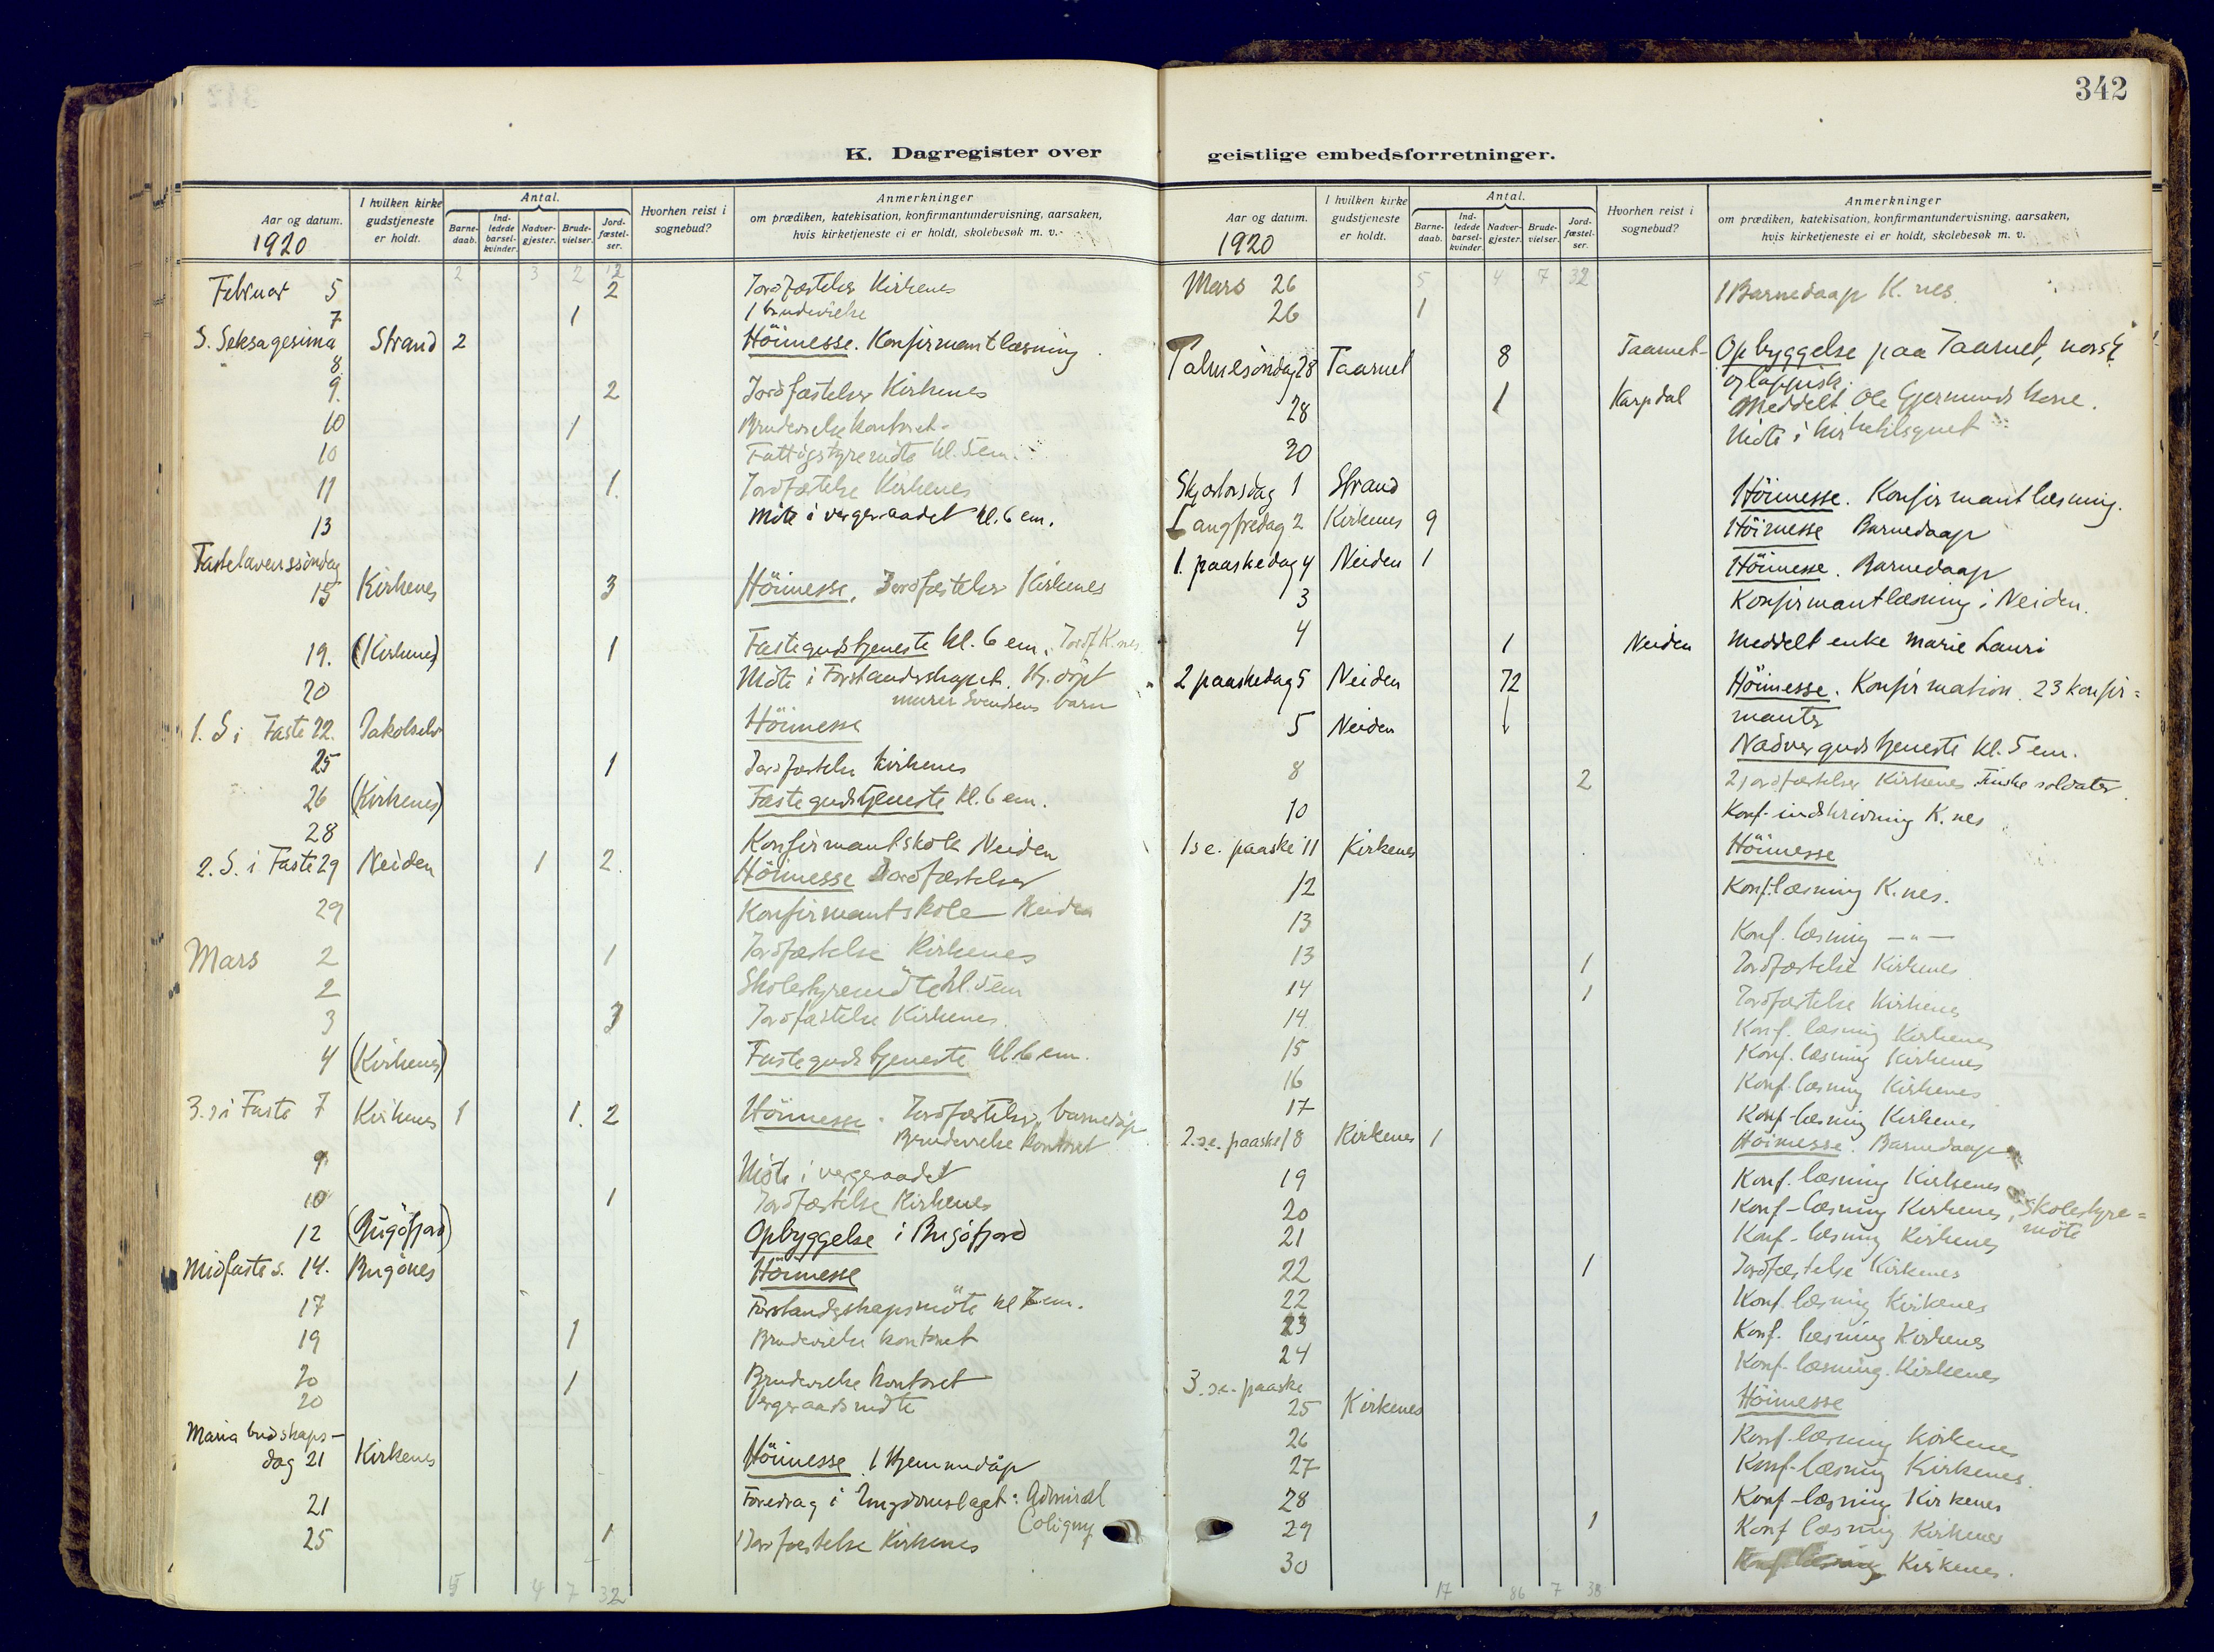 342
K. Dagregister over
geistlige embedsforretninger.
Aar og datum.
1920
I hvilken kirke gudstjeneste er holdt.
Antal.
Barne-daab.
Ind-ledede barsel-kvinder.
Nadver-gjester.
Brude-vielser.
Jord-fæstel-ser.
Hvorhen reist i sognebud?
Anmerkninger
om prædiken, katekisation, konfirmantundervisning, aarsaken,
hvis kirketjeneste ei er holdt, skolebesøk m. v.
2 3 2 12
Februar 5 2 Jordfæstelser Kirkenes
7 1 1 brudevielse
S. Seksagesima 8 Strand 2 Höimesse. Konfirmantlæsning
9. 2 Jordfæstelser Kirkenes
10 1 Brudevielse kontoret.
10 Fattigstyremöte kl. 5 em.
11 1. Jordfæstelse Kirkenes
13 Möte i vergeraadet kl. 6 em.
Fastelavenssöndag
15 Kirkenes 3 Höimesse. Jordfæstelser Kirkenes
19. (Kirkenes) 1 Fastegudstjeneste kl. 6 em. Jordf K.nes
20 Möte i Forstanderskapet. Hj. döpt
murer Svendsens barn
1. S i Faste 22. Jakobselv Höimesse
25 1 Jordfæstelse Kirkenes
26 (Kirkenes) Fastegudstjeneste kl. 6 em.
28 Konfirmantskole Neiden
2. S. i Faste 29 Neiden 1 2. Höimesse Jordfæstelser
29 Konfirmantskole Neiden
Mars 2 1 Jordfæstelse Kirkenes
2 Skolestyremöte kl. 5 em
3 3 Jordfæstelse Kirkenes.
4 (Kirkenes) Fastegudstjeneste kl. 6 em.
3. s i Faste 7 Kirkenes 1 1. 2 Höimesse. Jordfæstelser, barnedåp
Brudevielse kontoret
9 Möte i vergeraadet
10 1 Jordfæstelse Kirkenes
12 (Bugöfjord) Opbyggelse i Bugöfjord
Midfaste s. 14. Bugönes Höimesse
17 Forstandgskapsmöte kl 7 em.
19 1 Brudevielse kontoret
20 1 Brudevielse kontoret
20 Vergeraadsmöte
Maria budskaps-
dag 21 Kirkenes Höimesse 1 Hjemmedåp
21 Foredrag i Ungdomslaget: Admiral
Coligny
25 1 1 Jordfæstelse Kirkenes
5 4 7 32
Aar og datum.
1920
I hvilken kirke gudstjeneste er holdt.
Antal.
Barne-daab.
Ind-ledede barsel-kvinder.
Nadver-gjester.
Brude-vielser.
Jord-fæstel-ser.
Hvorhen reist i sognebud?
Anmerkninger
om prædiken, katekisation, konfirmantundervisning, aarsaken,
hvis kirketjeneste ei er holdt, skolebesøk m. v.
5 4 7 32
Mars 26 1 Barnedaap K. nes.
26 1
Palmesöndag 28 Taarnet 8 Taarnet Opbyggelse paa Taarnet, norsk
og lappisk.
28 1 Karpdal Meddelt Ole Gjermunds kone.
30 Möte i kirketilsynet
Skjærtorsdag 1 Strand Höimesse. Konfirmantlæsning.
Langfredag 2 Kirkenes 9 Höimesse Barnedaap
1. paaskedag 4 Neiden 1 Höimesse. Barnedaap
3 Konfirmantlæsning i Neiden.
4 1 Neiden Meddelt enke Marie Lauri
2 paaskedag 5 Neiden 72 Höimesse. Konfirmation. 23 konfir=
manter
5 Neiden Nadvergudstjeneste kl. 5 em.
8 2 2 jordfæstelser Kirkenes. finske soldater.
10 Konf. indskrivning K. nes
1 s e. paaske 11 Kirkenes Höimesse
12 Konf. læsning K. nes.
13 Konf. læsning - " -
13 1 Jordfæstelse Kirkenes
14 1 Jordfæstelse Kirkenes
14 Konf. læsning Kirkenes
15 Konf. læsning Kirkenes
16 Konf. læsning Kirkenes
17 Konf-læsning Kirkenes
2. s.e. paaske 18 Kirkenes 1 Höimesse. Barnedaap
19 Konf. læsning Kirkenes
20 Konf-læsning Kirkenes, Skolestyre=
möte
21 Konf-læsning Kirkenes
22 1 Jordfæstelse Kirkenes
22 Konf. læsning Kirkenes
23 Konf. læsning Kirkenes
24 Konf-læsning. Kirkenes
3. s.e. paaske
25 Kirkenes Höimesse
26 Konf-læsning Kirkenes
27 Konf-læsning Kirkenes.
28 Konf-læsning Kirkenes
29 1 Konf læsning Kirkenes
30 Konf. læsning Kirkenes.
17 86 7 38